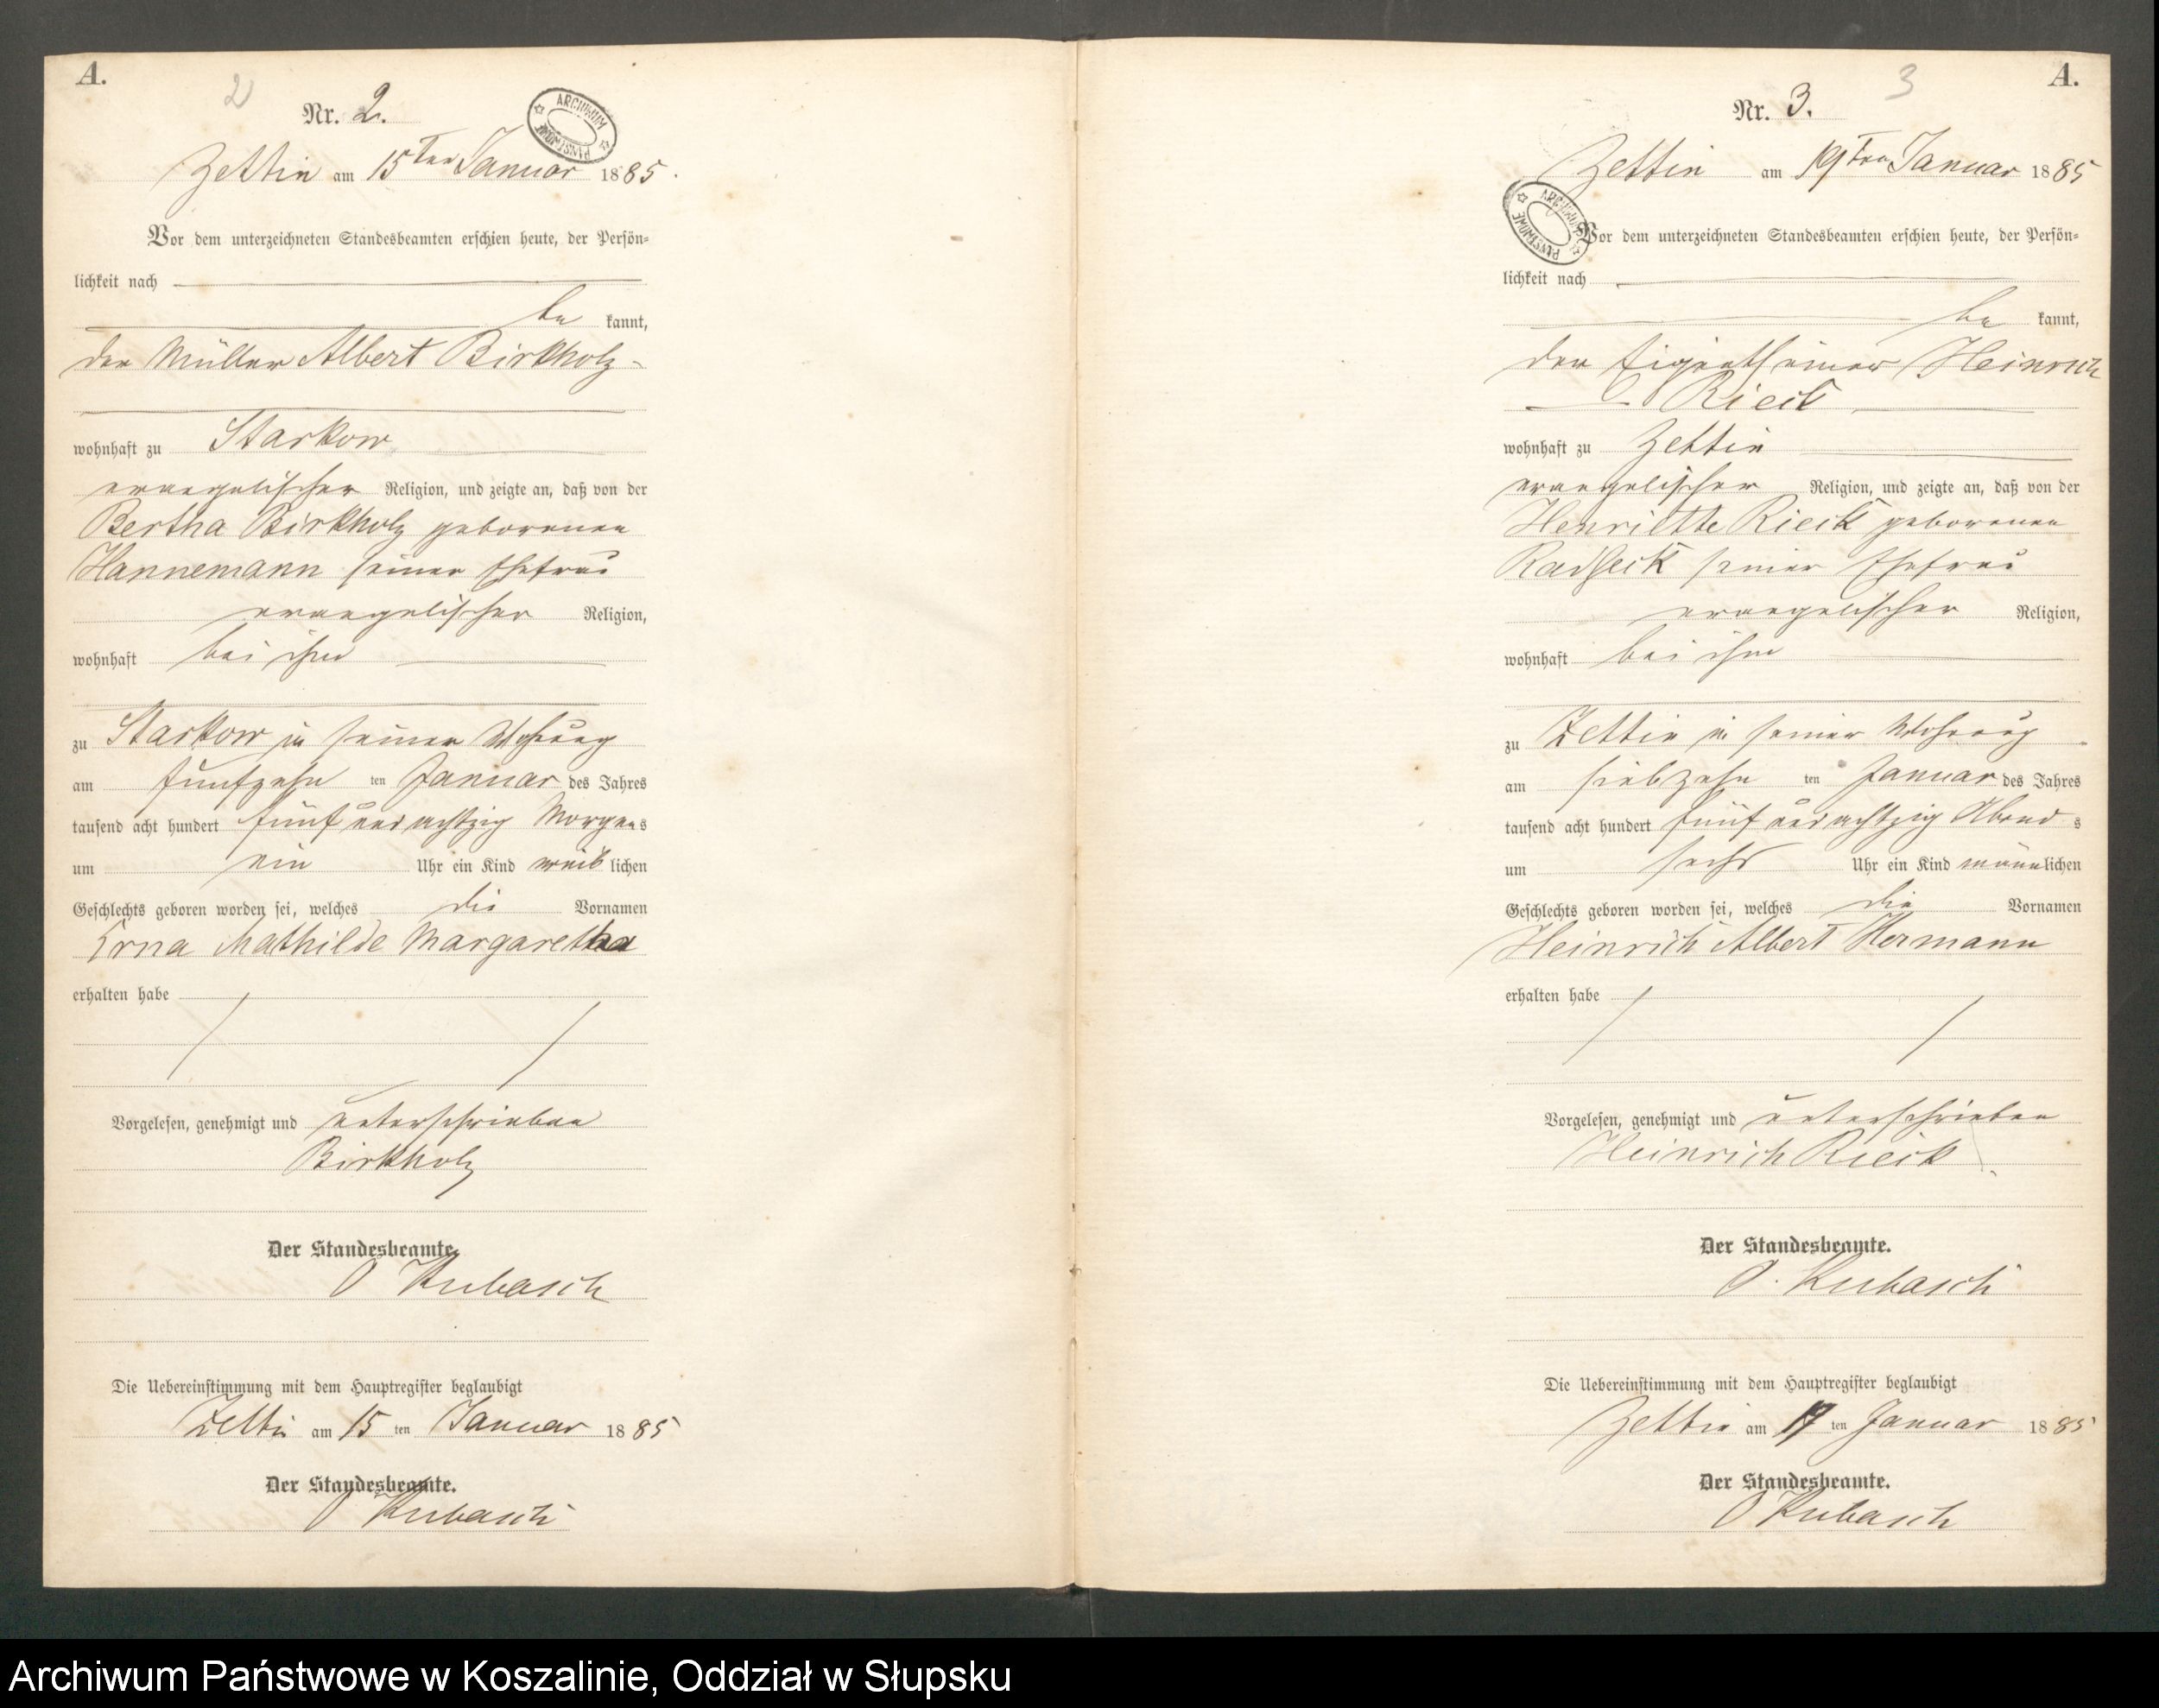 A.
2
Nr. 2.
ARCHIWUM PAŃSTWOWE
Zettin am 15ten Januar 1885.
Vor dem unterzeichneten Standesbeamten erschien heute, der Persön-
lichkeit nach
be kannt,
der Müller Albert Birkholz
wohnhaft zu Starkow
evangelischer Religion, und zeigte an, daß von der
Bertha Birkholz geborenen
Hannemann seiner Ehefrau
evangelischer Religion,
wohnhaft bei ihm
zu Starkow in seiner Wohnung
am fünfzehn ten Januar des Jahres
tausend acht hundert fünf und achtzig Morgens
um ein Uhr ein Kind weiblichen
Geschlechts geboren worden sei, welches die Vornamen
Erna Mathilde Margaretha
erhalten habe
Vorgelesen, genehmigt und unterschrieben
Birkholz
Der Standesbeamte.
O Kubasch
Die Uebereinstimmung mit dem Hauptregister beglaubigt
Zettin am 15 ten Januar 1885
Der Standesbeamte.
O Kubasch
A.
3
Nr. 3.
Zettin am 19ten Januar 1885
ARCHIWUM PAŃSTWOWE
Vor dem unterzeichneten Standesbeamten erschien heute, der Persön-
lichkeit nach
be kannt,
der Eigenthümer Heinrich
Rieck
wohnhaft zu Zettin
evangelischer Religion, und zeigte an, daß von der
Henriette Rieck geborenen
seiner Ehefrau
evangelischer Religion,
wohnhaft bei ihm
zu Zettin in seiner Wohnung
am siebzehn ten Januar des Jahres
tausend acht hundert fünf und achtzig Abends
um sechs Uhr ein Kind männlichen
Geschlechts geboren worden sei, welches die Vornamen
Heinrich Albert Hermann
erhalten habe
Vorgelesen, genehmigt und unterschrieben
Heinrich Rieck
Der Standesbeamte.
O. Kubasch
Die Uebereinstimmung mit dem Hauptregister beglaubigt
Zettin am ten Januar 1885
Der Standesbeamte.
O Kubasch
Archiwum Państwowe w Koszalinie, Oddział w Słupsku